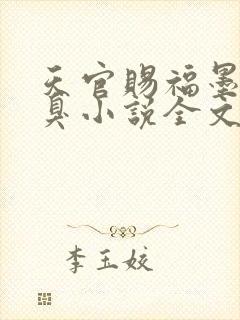 天官赐福墨
臭小说全文
李玉姣